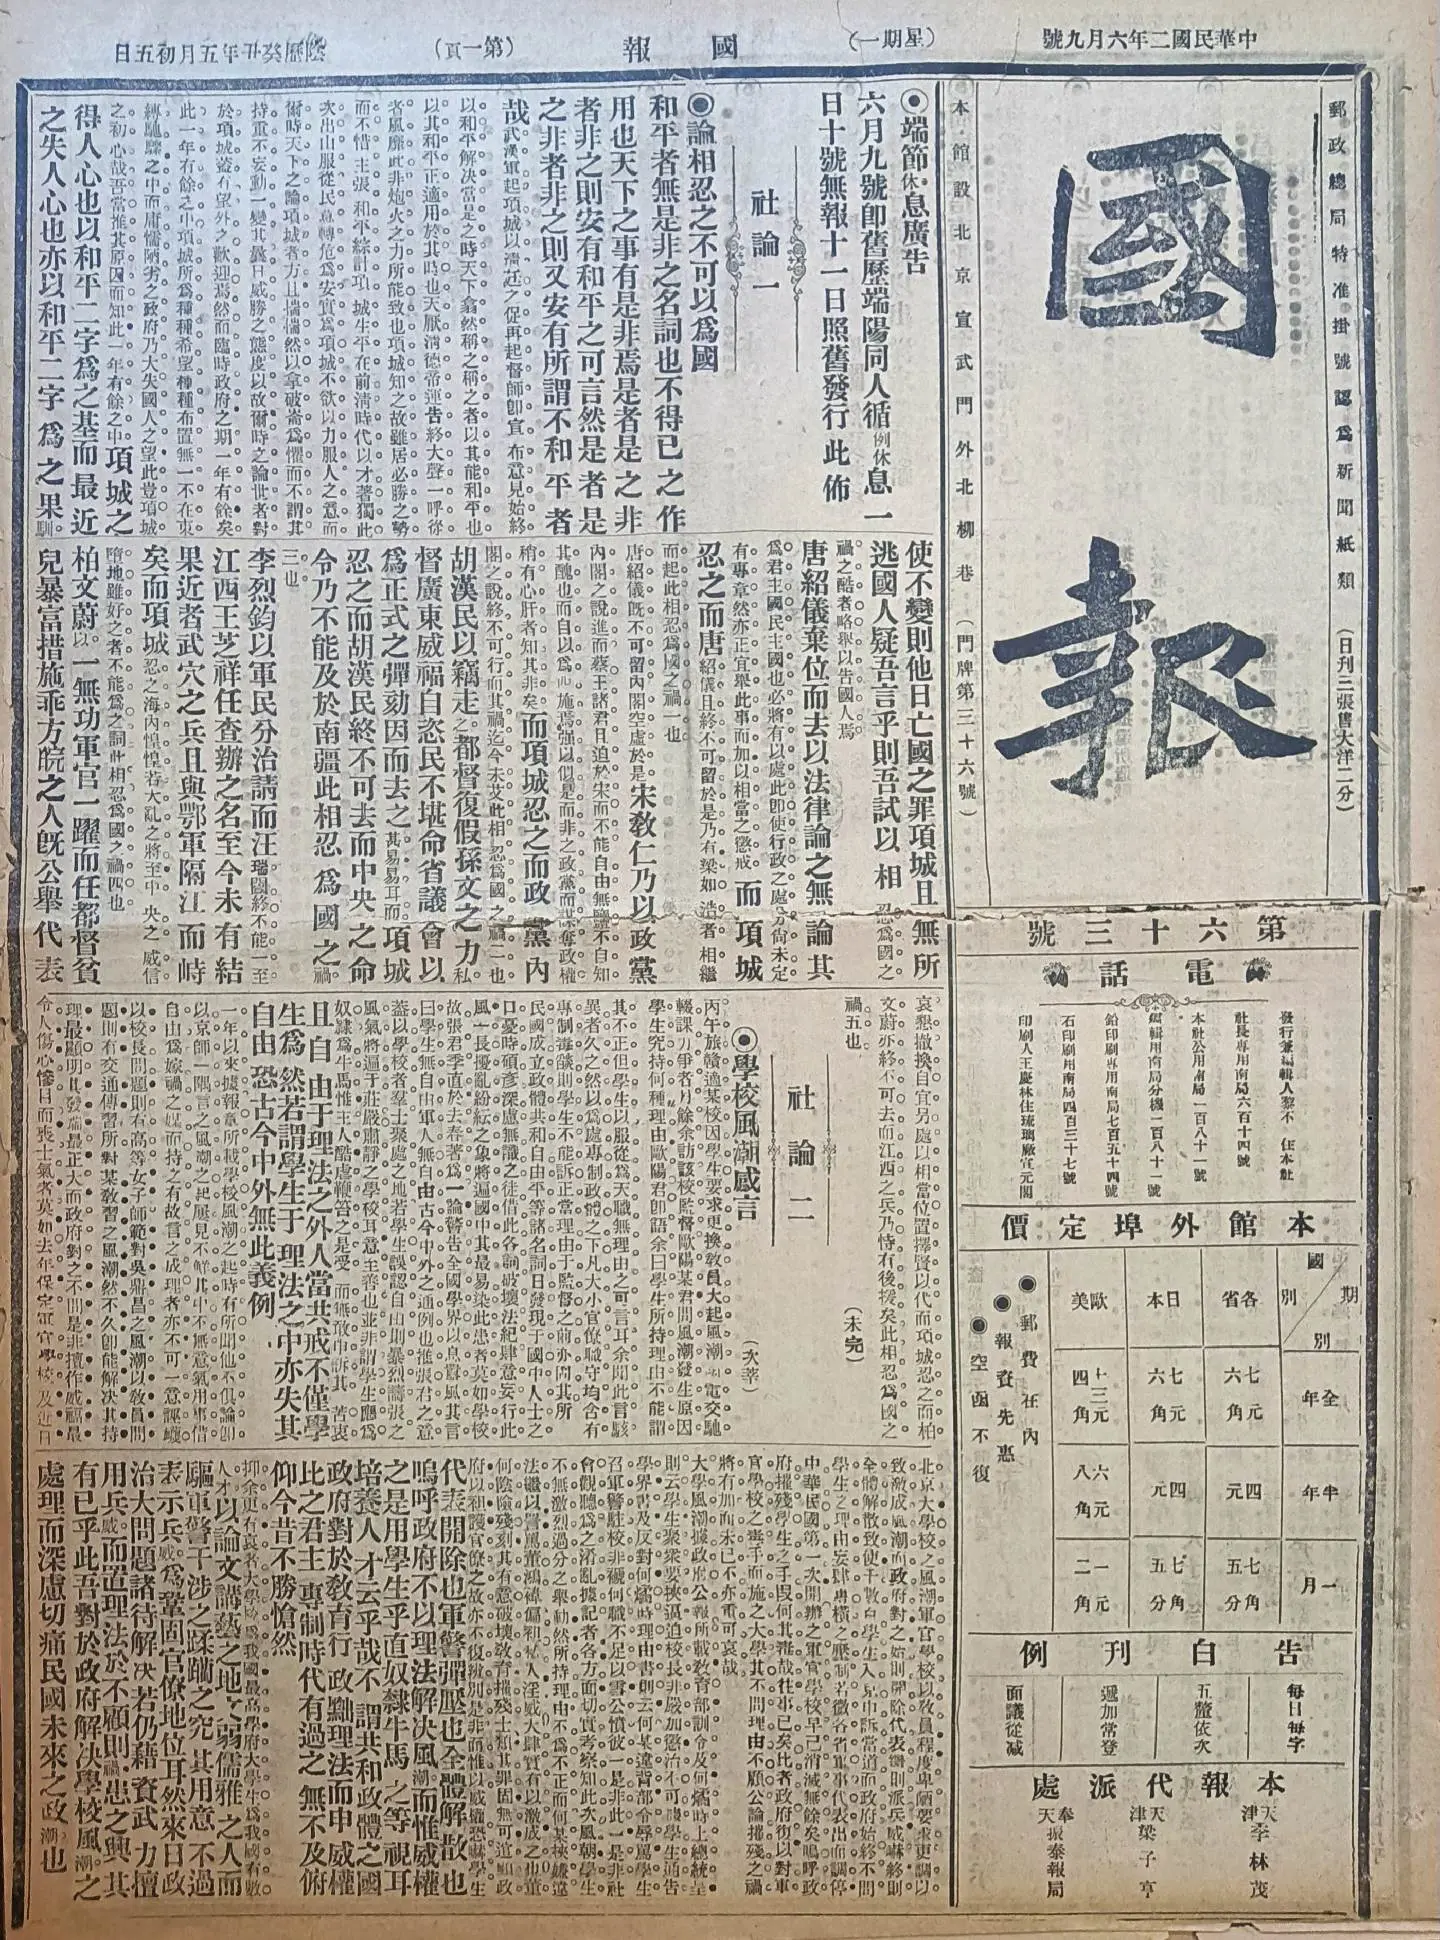 中華民國二年六月九號
（星期一）
國報
（第一頁）
陰歷癸丑年五月初五日
郵政總局特准掛號認爲新聞紙類（日刊三張售大洋二分）
國報
本館設北京宣武門外北柳巷（門牌第三十六號）
第六十三號
電話
發行兼編輯人黎不 住本社
社長專用南局六百十四號
本社公用南局一百八十一號
編輯用南局分機一百八十一號
鉛印刷專用南局七百五十四號
石印刷用南局四百三十七號
印刷人王慶林住琉璃廠宣元閣
本館外埠定價
期別 國別
全年 半年 一月
各省 七元六角 四元 七角五分
日本 七元六角 四元 七角五分
歐美 十三元四角 六元八角 一元二角
◉郵費在內
◉報資先惠
◉空函不復
告白刊例
每日每字
五釐依次
遞加常登
面議從減
本報代派處
天津李林茂
天津梁子亨
奉天振泰報局
◉端節休息廣告
六月九號卽舊歷端陽同人循例休息一
日十號無報十一日照舊發行此佈
社論一
◉論相忍之不可以爲國
和平者無是非之名詞也不得已之作
用也天下之事有是非焉是者是之非
者非之則安有和平之可言然是者是
之非者非之則又安有所謂不和平者
哉武漢軍起項城以清廷之促再起督師卽宣布意見始終
以和平解決當是之時天下翕然稱之稱之者以其能和平也
以其和平正適用於其時也天厭淸德帝運告終大聲一呼從
者風靡此非炮火之力所能致也項城知之故雖居必勝之勢
而不惜主張和平綜計項城生平在前淸時代以才著獨此
次出山服從民意轉危爲安實爲項城不欲以力服人之意而
爾時天下之論項城者方且惴惴然以拿破崙爲懼而不謂其
持重不妄動一變其曩日威勝之態度以故爾時之論世者對
於項城蓋有望外之歡迎焉然而臨時政府之期一年有餘矣
此一年有餘之中項城所爲種種希望種種布置無一不在束
縛馳驟之中而庸懦陋劣之政府乃大失國人之望此豈項城
之初心哉吾嘗推其原因而知此一年有餘之中項城之
得人心也以和平二字爲之基而最近
之失人心也亦以和平二字爲之果馴
使不變則他日亡國之罪項城且無所
逃國人疑吾言乎則吾試以相忍爲國之
禍之酷者略舉以告國人焉
唐紹儀棄位而去以法律論之無論其
爲君主國民主國也必將有以處此卽使行政之處分尙未定
有專章然亦正宜舉此事而加以相當之懲戒而項城
忍之而唐紹儀且終不可留於是乃有梁如浩者相繼
而起此相忍爲國之禍一也
唐紹儀旣不可留內閣空虛於是宋敎仁乃以政黨
內閣之說進而蔡王諸君且迫於宋而不能自由無鹽不自知
其醜也而自以爲施焉强以似是而非之政黨而謀奪政權
稍有心肝者知其非矣而項城忍之而政黨內
閣之說終不可行而其禍迄今未艾此相忍爲國之禍一也
胡漢民以竊走之都督復假孫文之力私
督廣東威福自恣民不堪命省議會以
爲正式之彈劾因而去之甚易易耳而項城
忍之而胡漢民終不可去而中央之命
令乃不能及於南疆此相忍爲國之禍
三也
李烈鈞以軍民分治請而汪瑞闓終不能一至
江西王芝祥任查辦之名至今未有結
果近者武穴之兵且與鄂軍隔江而峙
矣而項城忍之海內惶惶若大亂之將至中央之威信
墮地雖好之者不能爲之詞此相忍爲國之禍四也
柏文蔚以一無功軍官一躍而任都督貧
兒暴富措施乖方皖之人旣公舉代表
哀懇撤換自宜另處以相當位置擇賢以代而項城忍之而柏
文蔚亦終不可去而江西之兵乃恃有後援矣此相忍爲國之
禍五也（未完）
社論二
◉學校風潮感言（次莘）
丙午旅贛適某校因學生要求更換敎員大起風潮電交馳
輟課力爭者月餘余訪該校監督歐陽某君問風潮發生原因
學生究持何種理由歐陽君卽語余曰學生所持理由不能謂
其不正但學生以服從爲天職無理由之可言耳余聞此言駭
異者久之然以爲處專制政體之下凡大小官僚職守均含有
專制毒燄則學生不能訴正當理由于監督之前亦固其所
民國成立政體共和自由平等諸名詞日發現于國中人士之
口憂時碩彥深慮無識之徒借此各詞破壞法紀肆意妄行此
風一長擾亂紛紜之象將遍國中其最易染此患者莫如學校
故張君季直於去春著爲一論警告全國學界以息囂風其言
曰學生無自由軍人無自由古今中外之通例也推張君之意
蓋以學校者羣士聚處之地若學生誤認自由則暴烈譸張之
風氣將遍于莊嚴肅靜之學校耳意主善也並非謂學生應爲
奴隸爲牛馬惟主人酷虐鞭笞之是受而無敢申訴其苦衷
且自由于理法之外人當共戒不僅學
生爲然若謂學生于理法之中亦失其
自由恐古今中外無此義例
一年以來據報章所載學校風潮之起時有所聞他不俱論卽
以京師一隅言之風潮之起屢見不鮮其中不無意氣用事借
自由爲嫁禍之媒而持之有故言之成理者亦不可一意誣衊
以校長問題則有高等女子師範對吳鼎昌之風潮以敎員問
題則有交通傳習所對某敎習之風潮然不久卽能解決其持
理最顯明其發端最正大而政府對之不問是非擅作威福最
令人傷心慘目而喪士氣者莫如去年保定軍官學校及近日
北京大學校之風潮軍官學校以敎員程度卑陋要求更調以
致激成風潮而政府對之始則開除代表繼則派兵威嚇終則
全體解散致使千數百學生入京申訴當道而政府始終不問
學生之理由妄肆專橫之壓制若微各省軍事代表出而調停
中華民國第一次開辦之軍官學校早已消滅無餘矣嗚呼政
府摧殘學生之手段何其毒哉往事已矣比者政府復以對軍
官學校之毒手而施之大學其不問理由不顧公論摧殘之禍
將有加而未已不亦重可哀哉
大學風潮據政府公報所載敎育部訓令及何燏時上總統呈
則云學生聚衆要挾逼迫校長非嚴加懲治不可據學生通吿
學界書及反對何燏時理由書則云何某違背部令辱罵學生
召軍警駐校非褫何職不足以雪公憤彼一是非此一是非社
會觀聽爲之淆亂據記者各方面切實考察知此次風潮學生
不無激烈過分之舉動然所持理由不爲不正而何某挾嫌違
法繼以詈罵董鴻禕偏袒私人淫威大肆實有以激成之也董
何陰險殘刻其有意破壞敎育摧殘士類其罪固無可逭願政
府以袒護官僚之故亦不復辨別是非而惟以威權恐嚇學生
代表開除也軍警彈壓也全體解散也
嗚呼政府不以理法解决風潮而惟威權
之是用學生乎直奴隸牛馬之等視耳
培養人才云乎哉不謂共和政體之國
政府對於敎育行政黜理法而申威權
比之君主專制時代有過之無不及俯
仰今昔不勝愴然
抑余更有哀者大學校爲我國最高學府大學生爲我國有數
人才以論文講藝之地文弱儒雅之人而
驅軍警干涉之蹂躪之究其用意不過
表示兵威爲鞏固官僚地位耳然來日政
治大問題諸待解决若仍藉資武力擅
用兵威而置理法於不顧則禍患之興其
有已乎此吾對於政府解决學校風潮之
處理而深慮切痛民國未來之政潮也